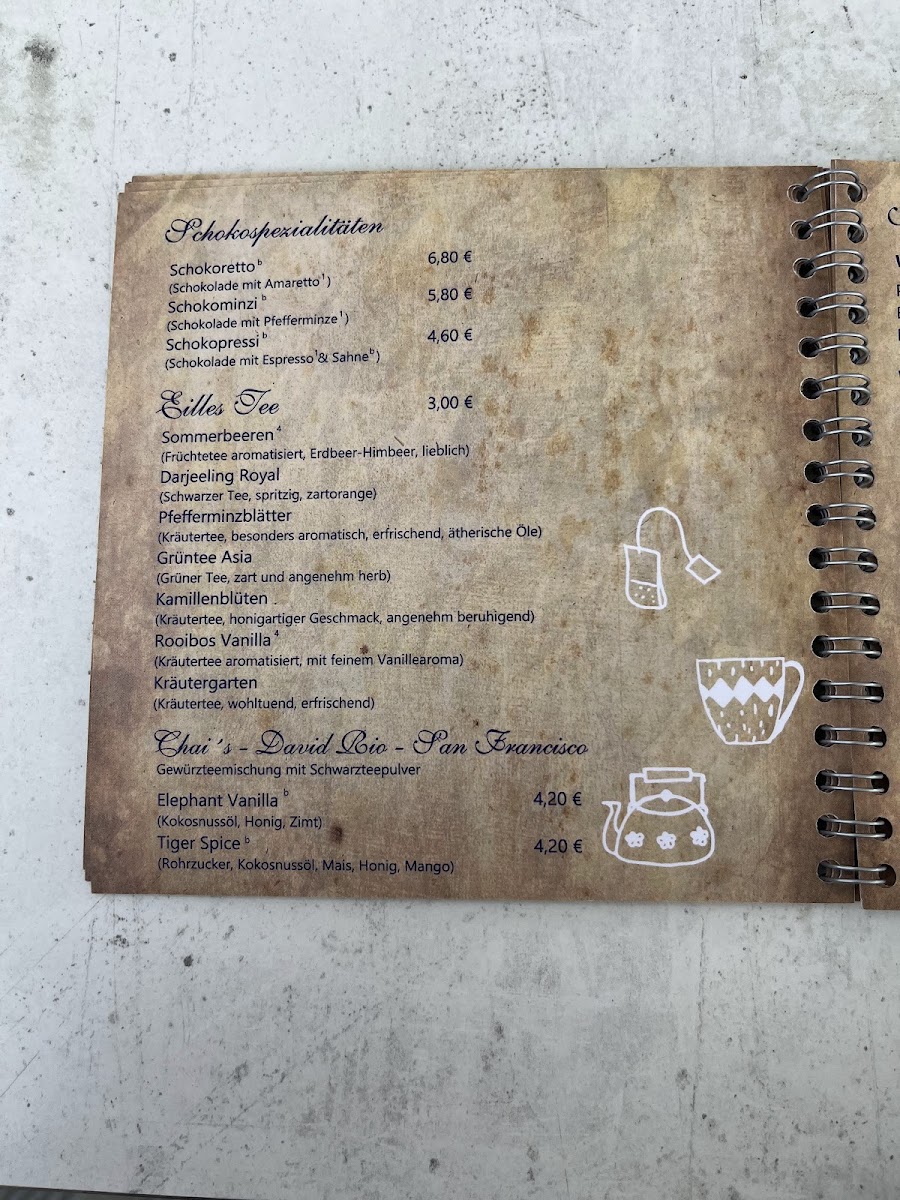 Schokospezialitäten
Schokoretto b 6,80 €
(Schokolade mit Amaretto 1)
Schokominzi b 5,80 €
(Schokolade mit Pfefferminze 1)
Schokopressi b 4,60 €
(Schokolade mit Espresso 1 & Sahne b)
Eilles Tee 3,00 €
Sommerbeeren 4
(Früchtetee aromatisiert, Erdbeer-Himbeer, lieblich)
Darjeeling Royal
(Schwarzer Tee, spritzig, zartorange)
Pfefferminzblätter
(Kräutertee, besonders aromatisch, erfrischend, ätherische Öle)
Grüntee Asia
(Grüner Tee, zart und angenehm herb)
Kamillenblüten
(Kräutertee, honigartiger Geschmack, angenehm beruhigend)
Rooibos Vanilla 4
(Kräutertee aromatisiert, mit feinem Vanillearoma)
Kräutergarten
(Kräutertee, wohltuend, erfrischend)
Chai´s - David Rio - San Francisco
Gewürzteemischung mit Schwarzteepulver
Elephant Vanilla b 4,20 €
(Kokosnussöl, Honig, Zimt)
Tiger Spice b 4,20 €
(Rohrzucker, Kokosnussöl, Mais, Honig, Mango)